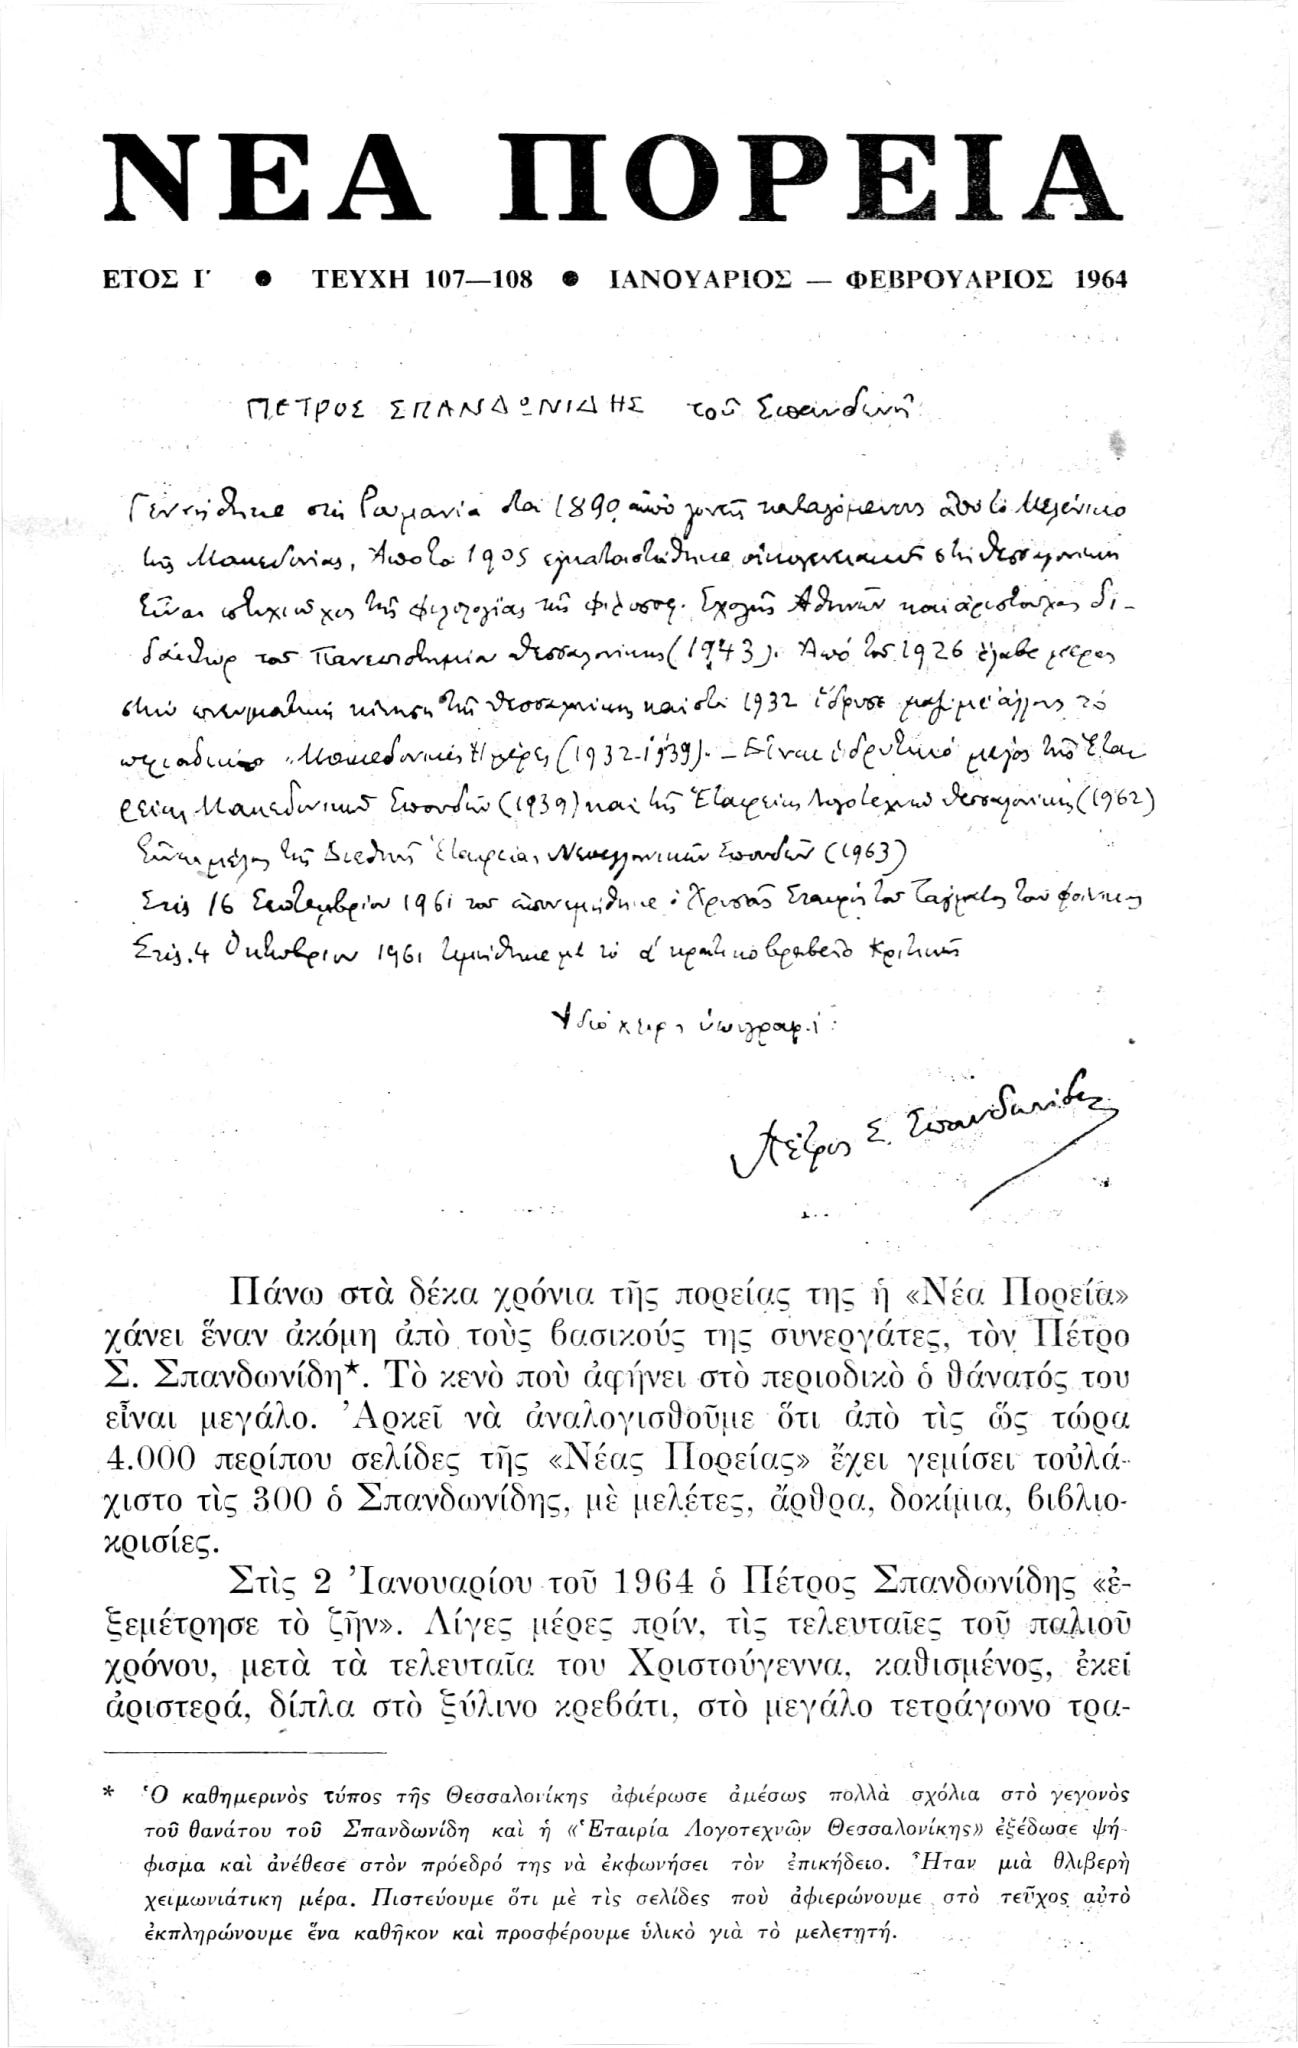 ΝΕΑ ΠΟΡΕΙΑ
ΕΤΟΣ Ι΄ • ΤΕΥΧΗ 107—108 • ΙΑΝΟΥΑΡΙΟΣ — ΦΕΒΡΟΥΑΡΙΟΣ 1964
ΠΕΤΡΟΣ ΣΠΑΝΔΩΝΙΔΗΣ τοῦ Σπανδωνῆ
Γεννήθηκε στὴ Ρουμανία στα 1890 ἀπὸ γονεῖς καταγόμενους ἀπὸ τὸ Μελένικο
τῆς Μακεδονίας, Ἀπὸ τὰ 1905 ἐγκαταστάθηκε οἰκογενειακῶς στὴ Θεσσαλονίκη
Εἶναι πτυχιοῦχος τῆς φιλολογίας τῆς Φιλοσοφ. Σχολῆς Ἀθηνῶν καὶ ἀριστοῦχος δι-
δάκτωρ τοῦ Πανεπιστημίου Θεσσαλονίκης (1943). Ἀπὸ τοῦ 1926 ἔλαβε μέρος
στὴν πνευματικὴ κίνηση τῆς Θεσσαλονίκης καὶ στὰ 1932 ἵδρυσε μαζὶ μὲ ἄλλους τὸ
περιοδικὸ «Μακεδονικὲς Ἡμέρες (1932-1939). — Εἶναι ἱδρυτικὸ μέλος τῆς Ἑται
ρείας Μακεδονικῶν Σπουδῶν (1939) καὶ τῆς Ἑταιρείας Λογοτεχνῶν Θεσσαλονίκης (1962)
Εἶναι μέλος τῆς Διεθνῆς Ἑταιρείας Νεοελληνικῶν Σπουδῶν (1963)
Στὶς 16 Σεπτεμβρίου 1961 τοῦ ἀπονεμήθηκε ὁ Χρυσοῦς Σταυρὸς τοῦ Τάγματος τοῦ Φοίνικος
Στὶς 4 Ὀκτωβρίου 1961 τιμήθηκε μὲ τὸ α΄ κρατικὸ βραβεῖο Κριτικῆς
Ἰδιόχειρη ὑπογραφή:
Πέτρος Σ. Σπανδωνίδης
Πάνω στὰ δέκα χρόνια τῆς πορείας της ἡ «Νέα Πορεία»
χάνει ἕναν ἀκόμη ἀπὸ τοὺς βασικούς της συνεργάτες, τὸν Πέτρο
Σ. Σπανδωνίδη*. Τὸ κενὸ ποὺ ἀφήνει στὸ περιοδικὸ ὁ θάνατός του
εἶναι μεγάλο. Ἀρκεῖ νὰ ἀναλογισθοῦμε ὅτι ἀπὸ τὶς ὥς τώρα
4.000 περίπου σελίδες τῆς «Νέας Πορείας» ἔχει γεμίσει τοὐλά-
χιστο τὶς 300 ὁ Σπανδωνίδης, μὲ μελέτες, ἄρθρα, δοκίμια, βιβλιο-
κρισίες.
Στὶς 2 Ἰανουαρίου τοῦ 1964 ὁ Πέτρος Σπανδωνίδης «ἐ-
ξεμέτρησε τὸ ζῆν». Λίγες μέρες πρίν, τὶς τελευταῖες τοῦ παλιοῦ
χρόνου, μετὰ τὰ τελευταῖα του Χριστούγεννα, καθισμένος, ἐκεῖ
ἀριστερά, δίπλα στὸ ξύλινο κρεβάτι, στὸ μεγάλο τετράγωνο τρα-
* Ὁ καθημερινὸς τύπος τῆς Θεσσαλονίκης ἀφιέρωσε ἀμέσως πολλὰ σχόλια στὸ γεγονὸς
τοῦ θανάτου τοῦ Σπανδωνίδη καὶ ἡ «Ἑταιρία Λογοτεχνῶν Θεσσαλονίκης» ἐξέδωσε ψή-
φισμα καὶ ἀνέθεσε στὸν πρόεδρό της νὰ ἐκφωνήσει τὸν ἐπικήδειο. Ἦταν μιὰ θλιβερὴ
χειμωνιάτικη μέρα. Πιστεύουμε ὅτι μὲ τὶς σελίδες ποὺ ἀφιερώνουμε στὸ τεῦχος αὐτὸ
ἐκπληρώνουμε ἕνα καθῆκον καὶ προσφέρουμε ὑλικὸ γιὰ τὸ μελετητή.